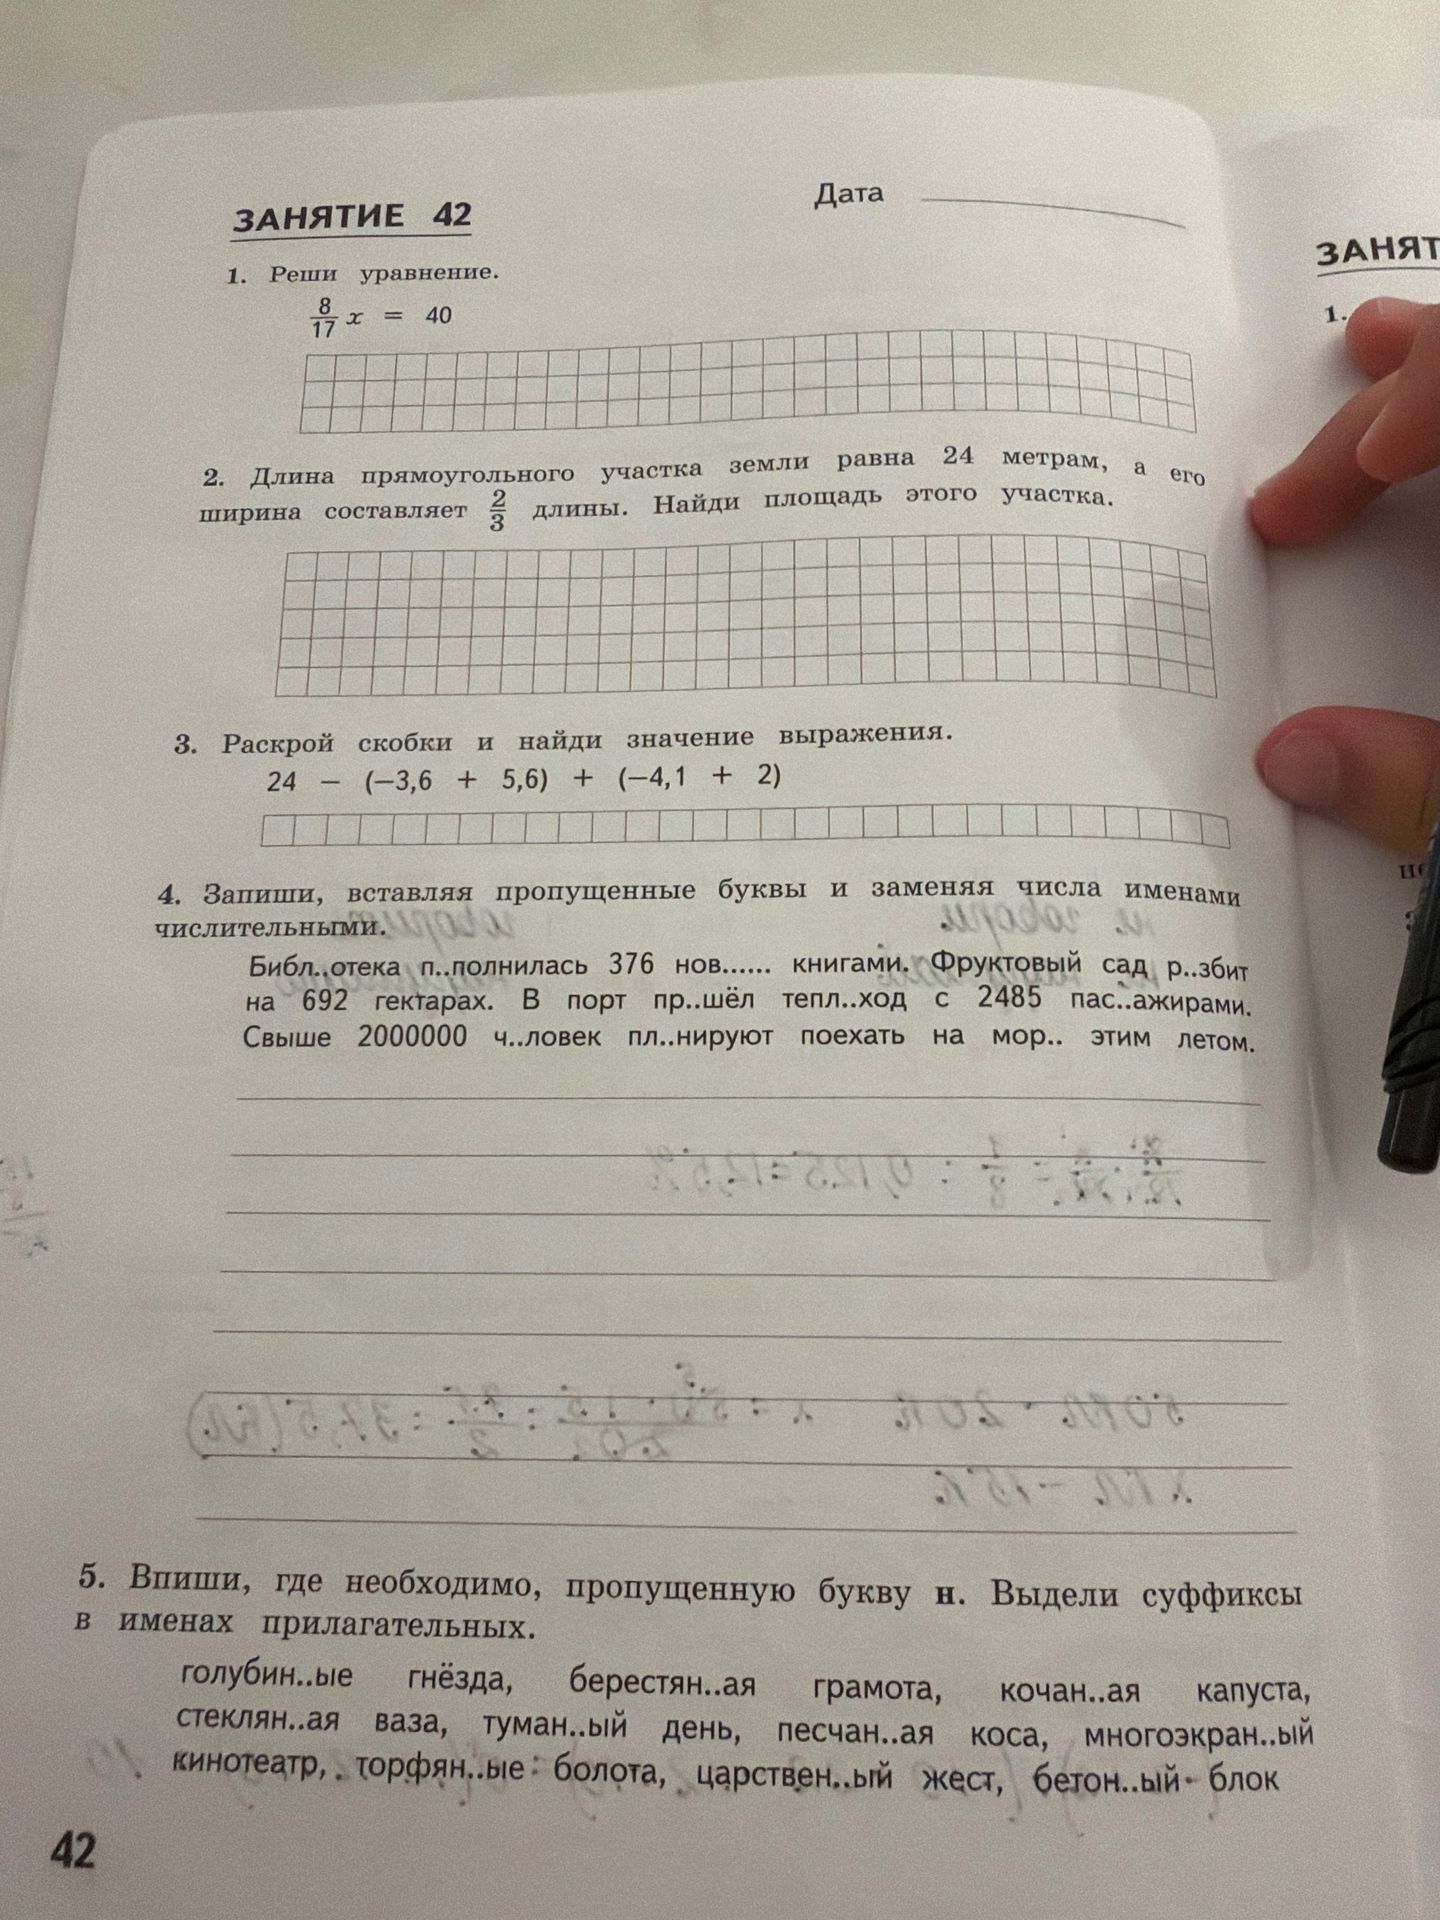 Дата
ЗАНЯТИЕ 42
1. Реши уравнение.
8/17 x = 40
2. Длина прямоугольного участка земли равна 24 метрам, а его
ширина составляет 2/3 длины. Найди площадь этого участка.
3. Раскрой скобки и найди значение выражения.
24 − (−3,6 + 5,6) + (−4,1 + 2)
4. Запиши, вставляя пропущенные буквы и заменяя числа именами
числительными.
Библ..отека п..полнилась 376 нов...... книгами. Фруктовый сад р..збит
на 692 гектарах. В порт пр..шёл тепл..ход с 2485 пас..ажирами.
Свыше 2000000 ч..ловек пл..нируют поехать на мор.. этим летом.
5. Впиши, где необходимо, пропущенную букву н. Выдели суффиксы
в именах прилагательных.
голубин..ые гнёзда, берестян..ая грамота, кочан..ая капуста,
стеклян..ая ваза, туман..ый день, песчан..ая коса, многоэкран..ый
кинотеатр, торфян..ые болота, царствен..ый жест, бетон..ый блок
42
ЗАНЯТ
1.